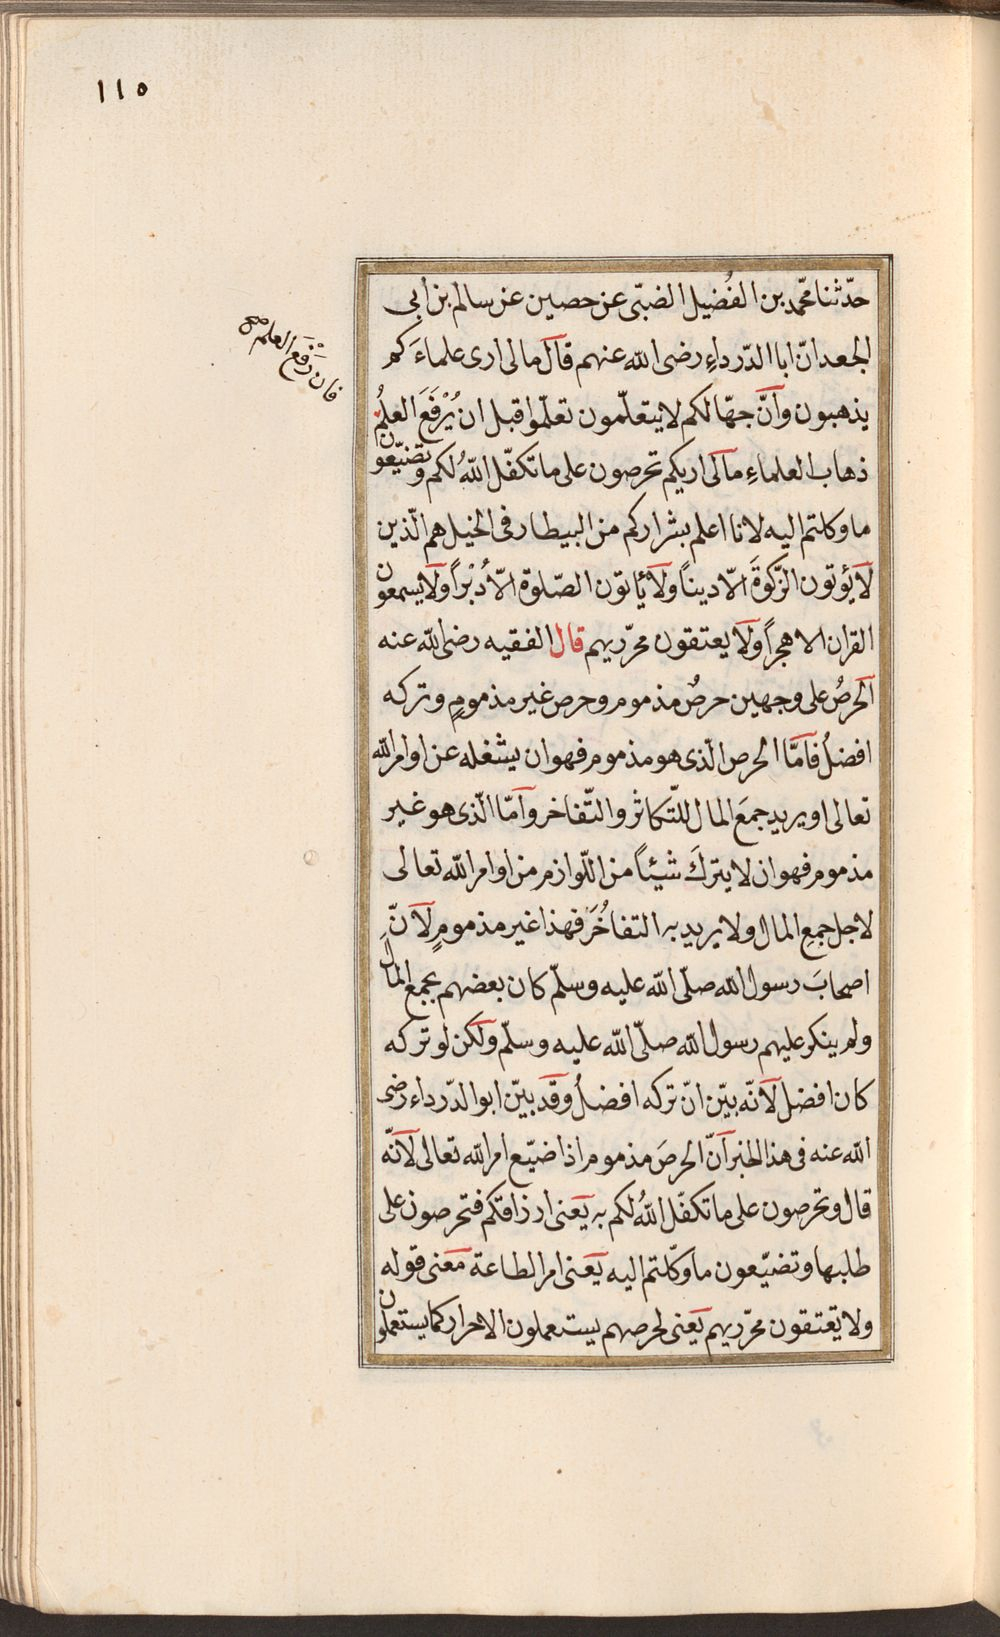 ١١٥
حدّثنا محّمد بن الفُضيل الضبّى عن حصين عن سالم بن أبى
الجعد انّ ابا الدّرداءِ رضى الله عنهم قال مالى ارى علماءَكم
يذهبون وانّ جهّالكم لايتعلّمون تعلّموا قبل ان يُرْفَعَ العلمُ
فان رَفْعَ العلم صح
ذهاب العلماءِ مالى اريكم تحرصون على ما تكفّل اللهُ لكم وتضيّعون
ما وكلتم اليه لانا اعلم بشراركم من البيطار فى الخيل هم الّذين
لا يؤتون الزّكوةَ الاّ ديناً ولا يأتون الصّلوة الاّ دُبْراً ولا يسمعون
القران الا هجراً ولا يعتقون محرّريهم قال الفقيه رضى الله عنه
الحرصُ على وجهين حرصٌ مذموم وحرص غير مذمومٍ وتركه
افضلُ فامّا الحرص الّذى هو مذموم فهو ان يشغله عن اوامر الله
تعالى او يريد جمعَ المال للتّكاثر والتّفاخر وامّا الّذى هو غير
مذموم فهو ان لا يتركَ شيئاً من اللّوازم من اوامر الله تعالى
لاجل جمعِ المال ولا يريد به التفاخُرَ فهذا غير مذمومٍ لانّ
اصحابَ رسول الله صلّى الله عليه وسلّم كان بعضهم يجمع المال
ولم ينكر عليهم رسول الله صلّى الله عليه وسلّم ولكن لو تركه
كان افضل لانّه بيّن انّ تركه افضلُ وقد بيّن ابو الدّرداء رضى
الله عنه فى هذا الخبر انّ الحرصَ مذموم اذا ضيّع امر الله تعالى لانّه
قال وتحرصون على ما تكفّل اللهُ لكم به يعنى ارزاقكم فتحرصون على
طلبها وتضيّعون ما وكّلتم اليه يعنى امر الطاعة معنى قوله
ولا يعتقون محرّريهم يعنى لحرصهم يستعملون الاحرار كما يستعملون